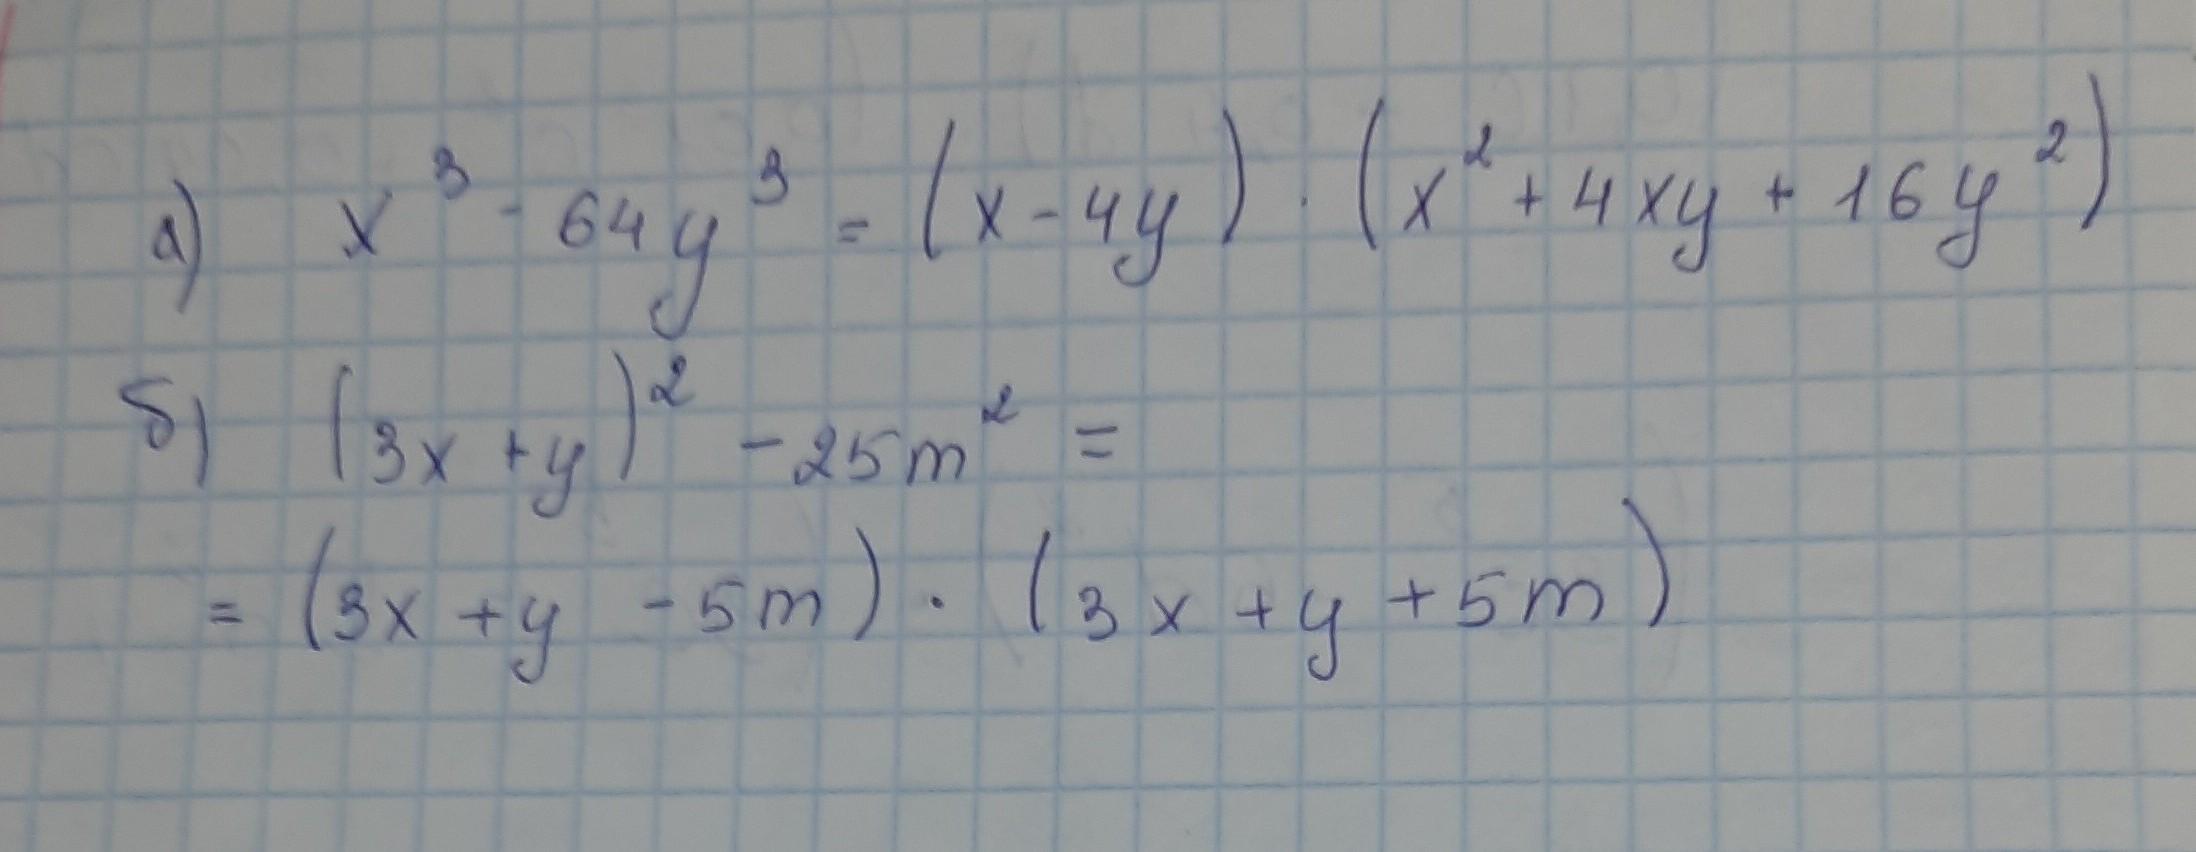 а) x³ - 64y³ = (x - 4y) · (x² + 4xy + 16y²)
б) (3x + y)² - 25m² =
= (3x + y - 5m) · (3x + y + 5m)